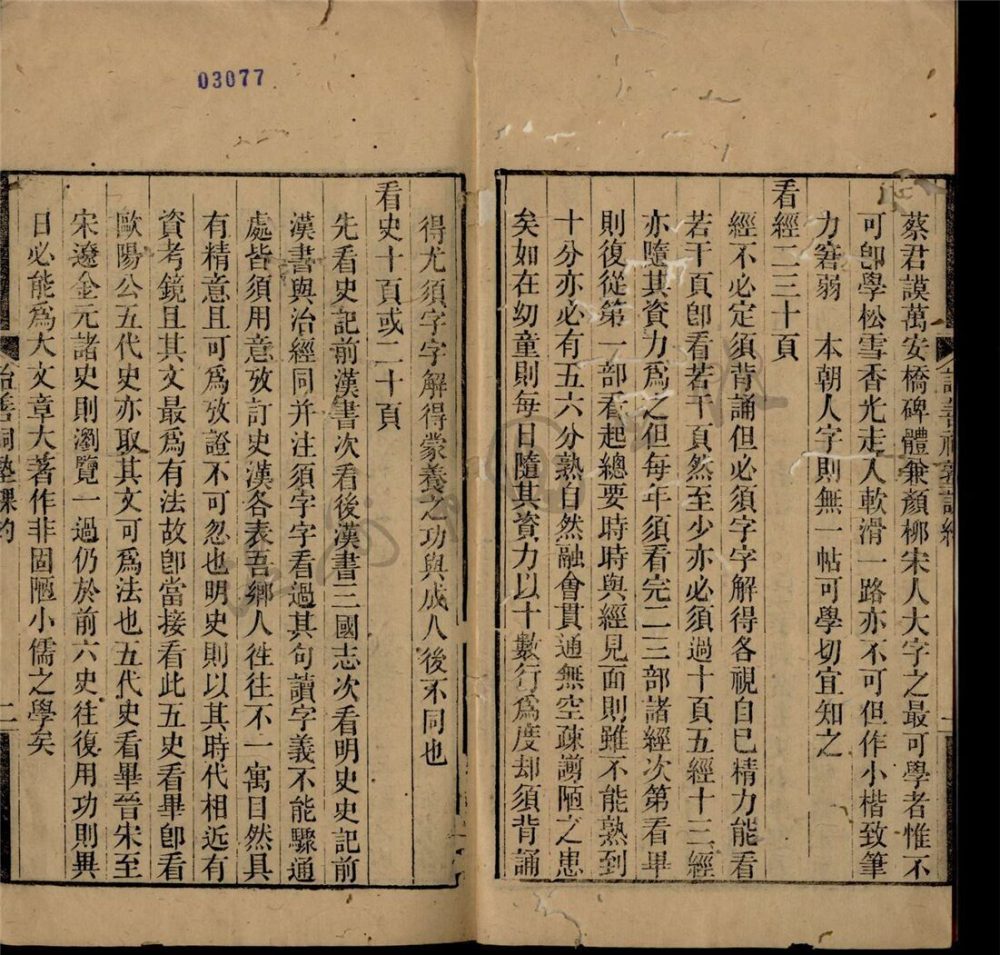 03077
蔡君謨萬安橋碑體兼顏柳宋人大字之最可學者惟不
可卽學松雪香光走入軟滑一路亦不可但作小楷致筆
力窘弱　本朝人字則無一帖可學切宜知之
看經二三十頁
經不必定須背誦但必須字字解得各視自己精力能看
若干頁卽看若干頁然至少亦必須過十頁五經十三經
亦隨其資力為之但每年須看完二三部諸經次第看畢
則復從第一部看起總要時時與經見面則雖不能熟到
十分亦必有五六分熟自然融會貫通無空疎謭陋之患
矣如在幼童則每日隨其資力以十數行為度却須背誦
得尤須字字解得蒙養之功與成人後不同也
看史十頁或二十頁
先看史記前漢書次看後漢書三國志次看明史史記前
漢書與治經同并注須字字看過其句讀字義不能驟通
處皆須用意攷訂史漢各表吾鄉人徃往不一寓目然具
有精意且可為攷證不可忽也明史則以其時代相近有
資考鏡且其文最為有法故卽當接看此五史看畢卽看
歐陽公五代史亦取其文可為法也五代史看畢晉宋至
宋遼金元諸史則瀏覽一過仍於前六史往復用功則異
日必能為大文章大著作非固陋小儒之學矣
治善祠塾課約
二